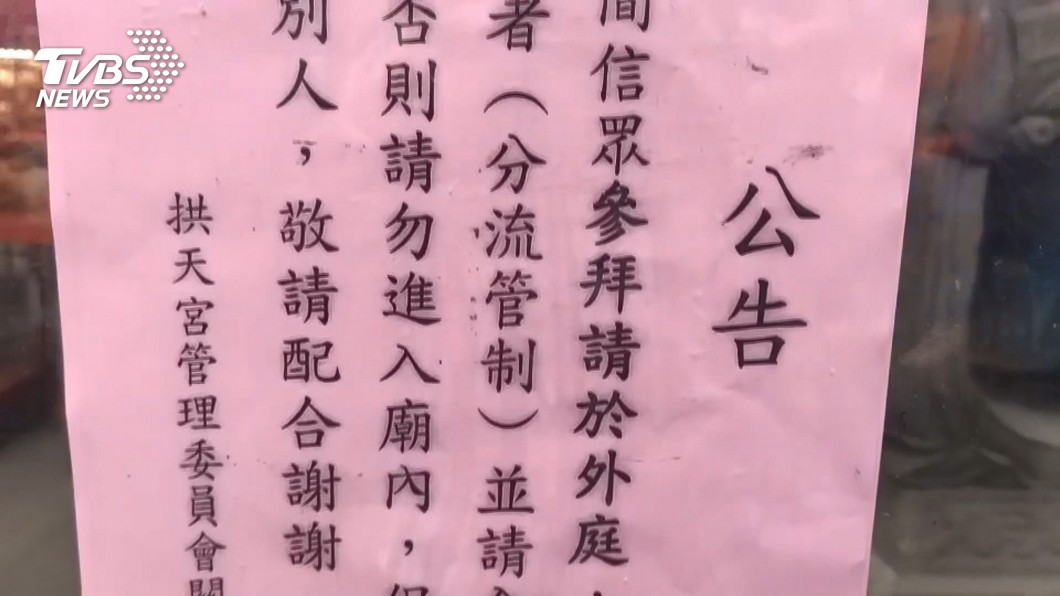 TVBS
NEWS
公告
間信眾參拜請於外庭，
者（分流管制）並請
否則請勿進入廟內，保
別人，敬請配合謝謝
拱天宮管理委員會關